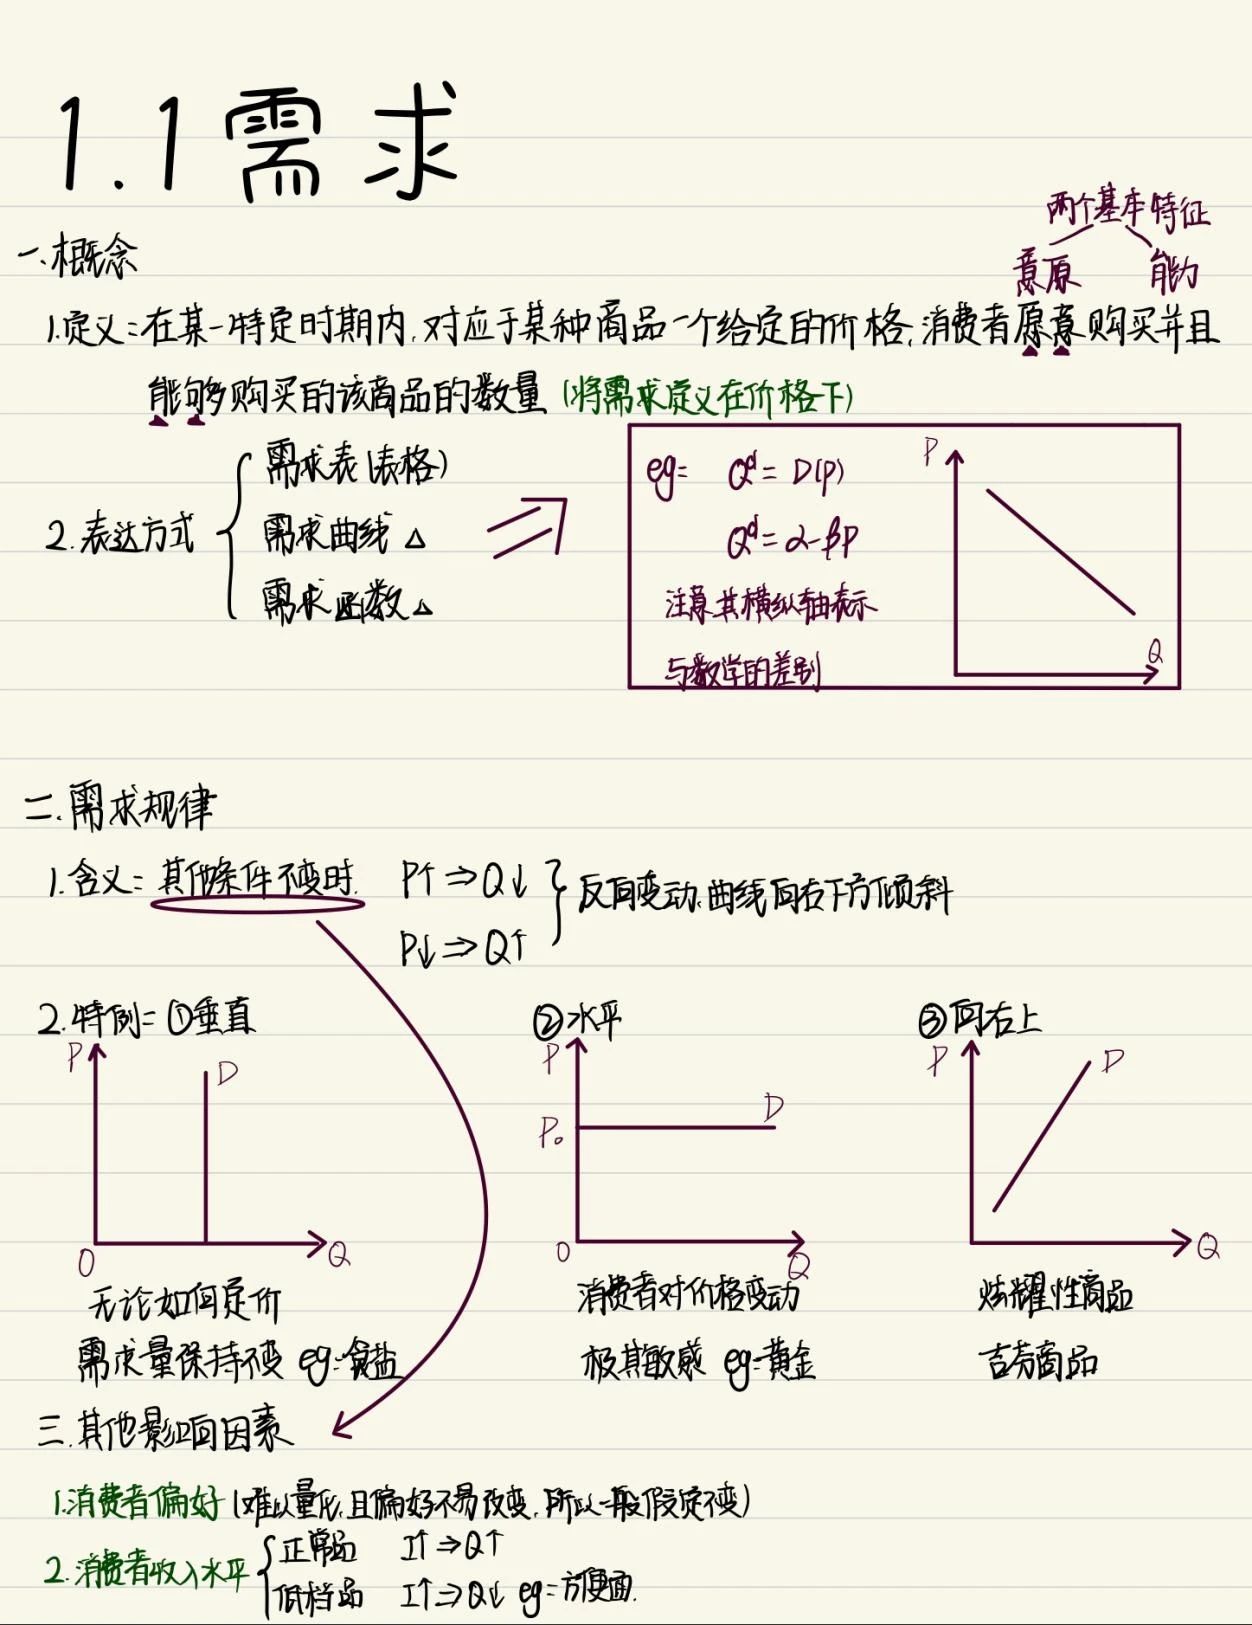 1.1 需求
两个基本特征
意原 能力
一.概念
1.定义:在某一特定时期内,对应于某种商品一个给定的价格,消费者原意购买并且
能够购买的该商品的数量(将需求定义在价格下)
2.表达方式
需求表(表格)
需求曲线 △
需求函数 △
eg: Qᵈ = D(P)
Qᵈ = α-βP
注意其横纵轴表示
与数学的差别
P
Q
二.需求规律
1.含义:其他条件不变时. P↑ ⇒ Q↓
P↓ ⇒ Q↑
反向变动,曲线向右下方倾斜
2.特例: ①垂直 ②水平 ③向右上
P D O Q
P P₀ D O Q
P D Q
无论如何定价 消费者对价格变动 炫耀性商品
需求量保持不变 eg:食盐 极其敏感 eg:黄金 吉芬商品
三.其他影响因素
1.消费者偏好(难以量化,且偏好不易改变,所以一般假定不变)
2.消费者收入水平
正常品 I↑ ⇒ Q↑
低档品 I↑ ⇒ Q↓ eg:方便面.